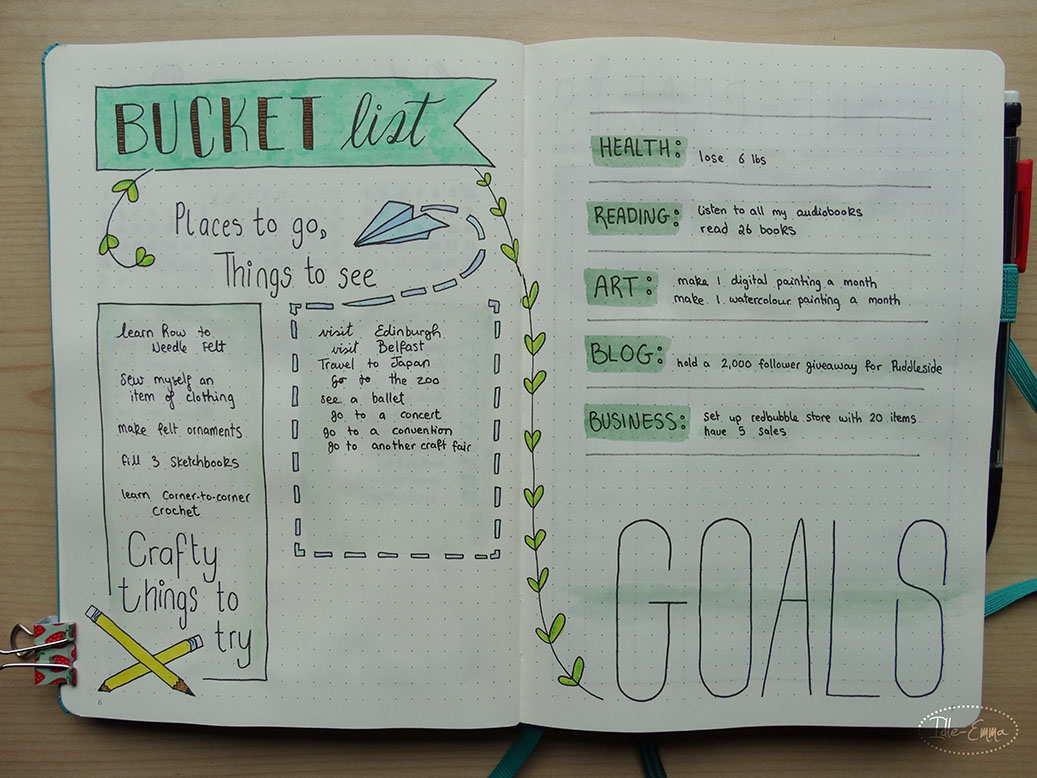 BUCKET list
Places to go,
Things to see
learn how to
Needle Felt
sew myself an
item of clothing
make felt ornaments
fill 3 sketchbooks
learn corner-to-corner
crochet
Crafty
things to
try
visit Edinburgh
visit Belfast
Travel to Japan
go to the zoo
see a ballet
go to a concert
go to a convention
go to another craft fair
6
HEALTH: lose 6 lbs
READING: listen to all my audiobooks
read 26 books
ART: make 1 digital painting a month
make 1 watercolour painting a month
BLOG: hold a 2,000 follower giveaway for Puddleside
BUSINESS: set up redbubble store with 20 items
have 5 sales
GOALS
Idle-Emma